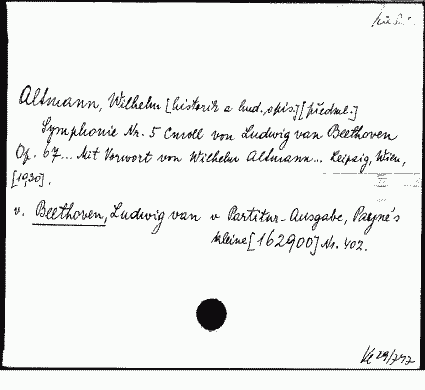 Altmann, Wilhelm [historik a hud. spis.] [předml.]
Symphonie Nr. 5 Cmoll von Ludwig van Beethoven
Op. 67... Mit Vorwort von Wilhelm Altmann... Leipzig, Wien,
[1930].
v. Beethoven, Ludwig van v Partitur-Ausgabe, Payne's
kleine [162900] Nr. 402.